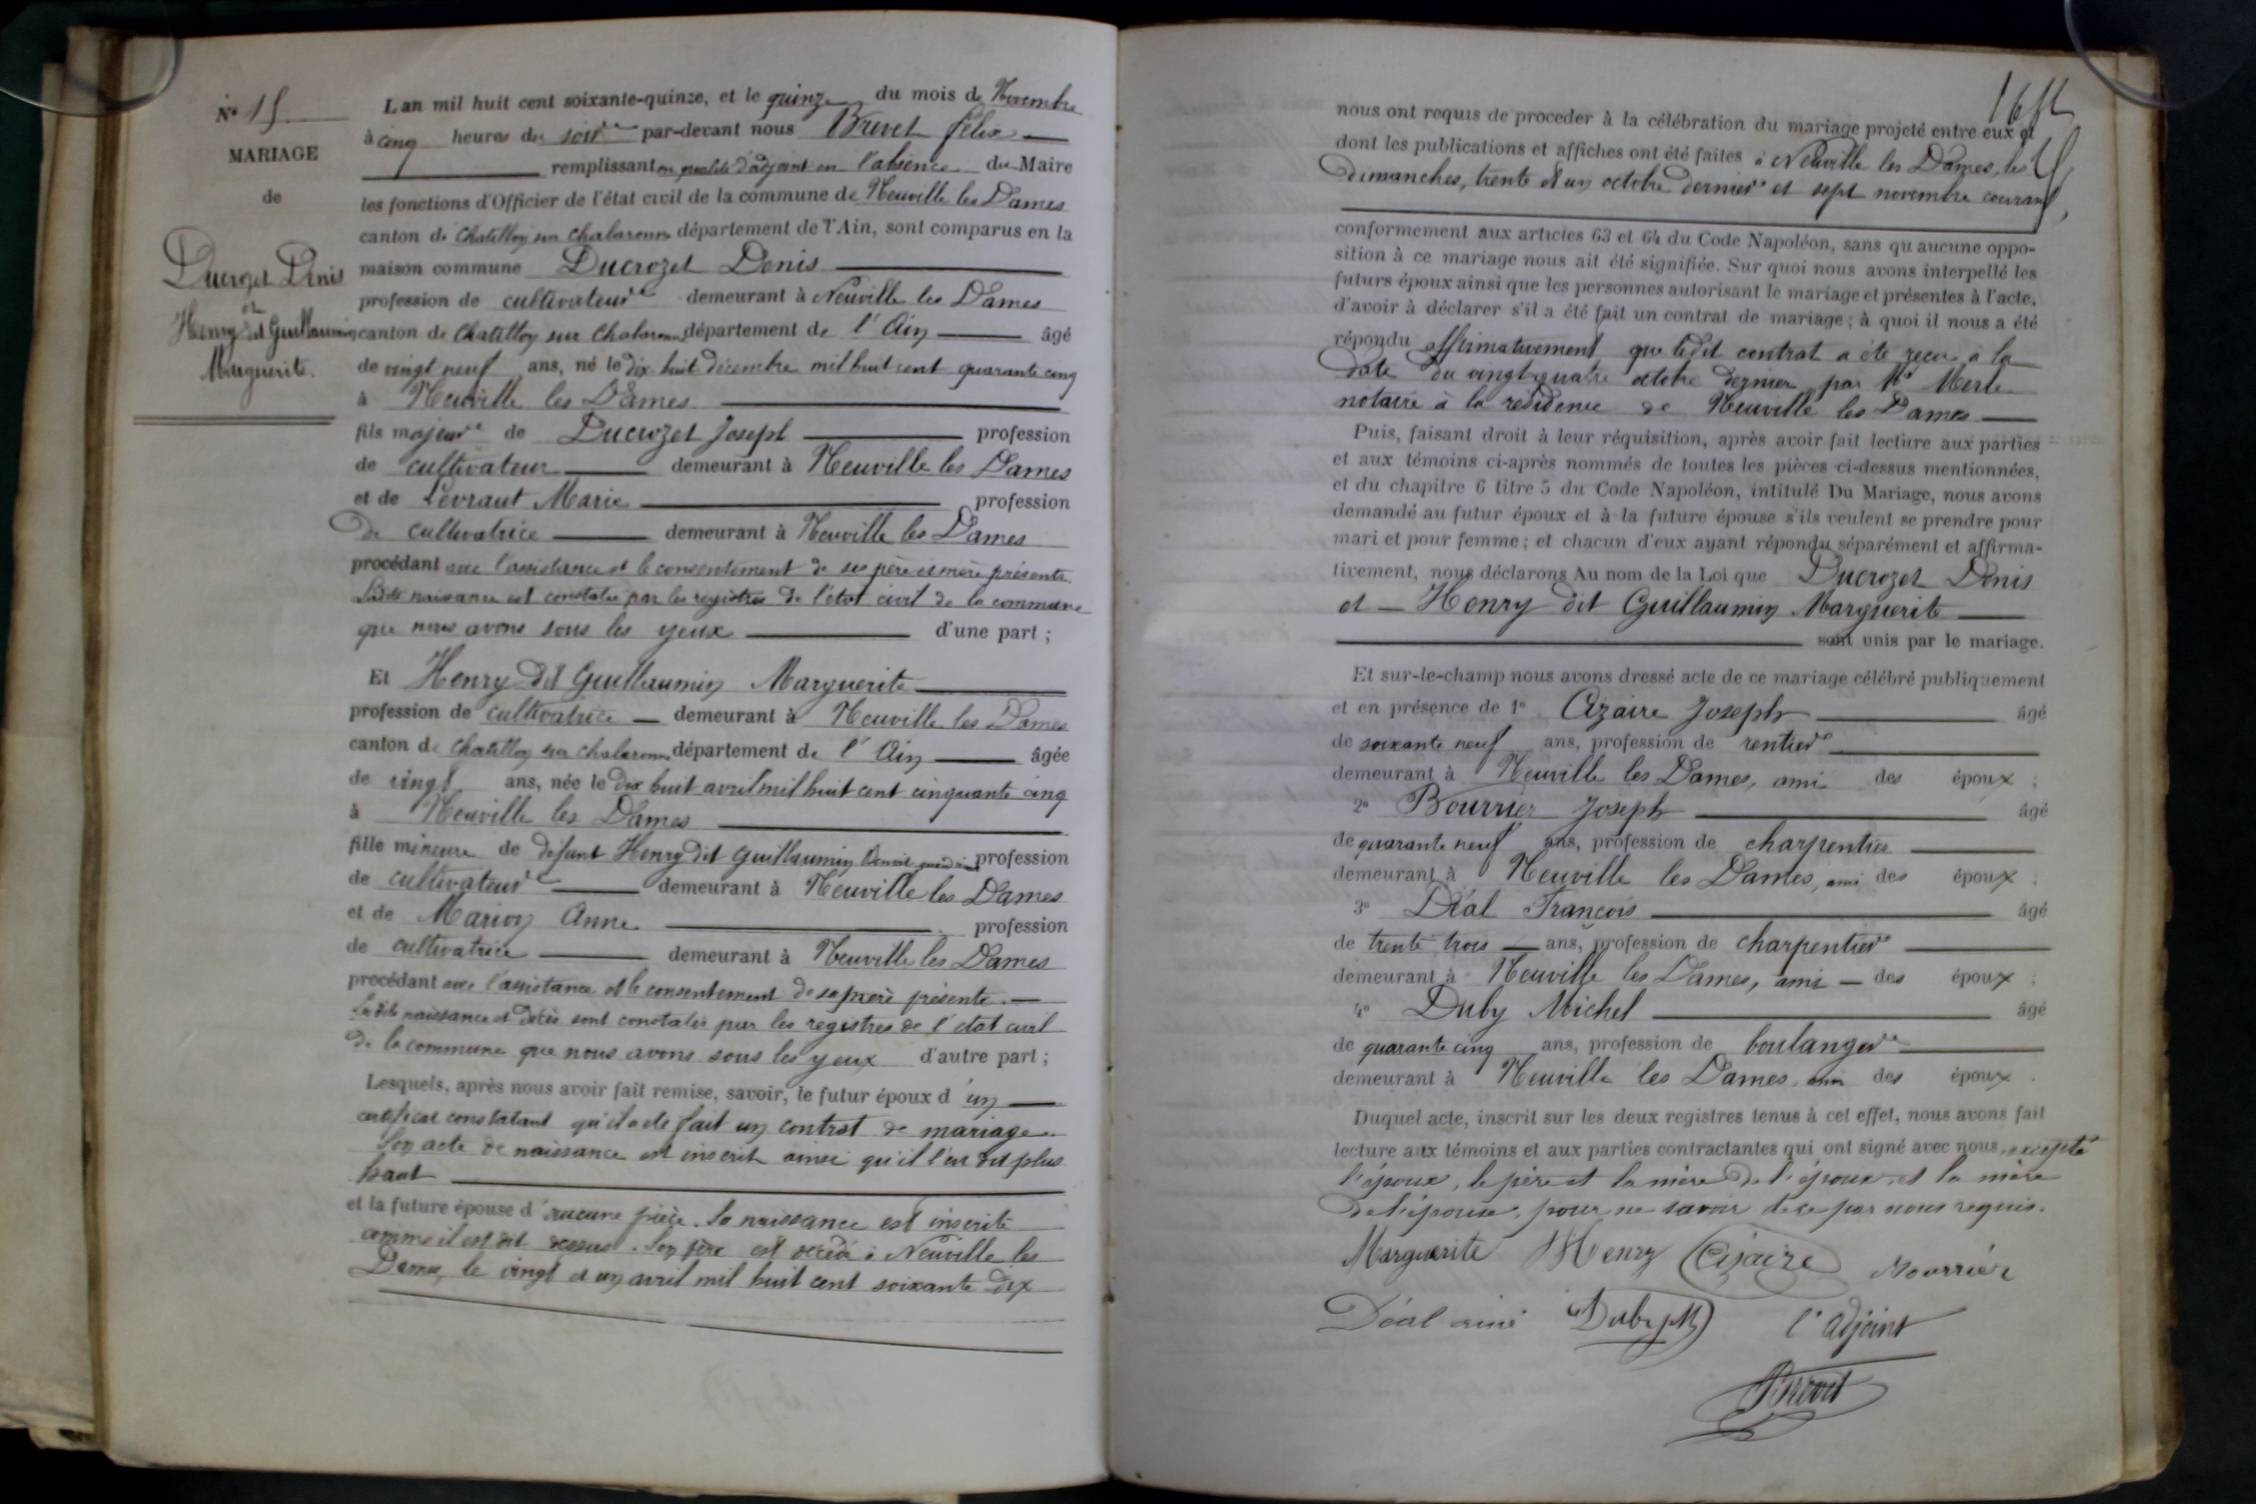 N° 15
MARIAGE
de
Ducrozet Denis
et
Henry dit Guillaumin
Marguerite.
L'an mil huit cent soixante-quinze, et le quinze du mois de Novembre
à cinq heures du soir par-devant nous Brevet félix
remplissant en qualité d'adjoint en l'absence du Maire
les fonctions d'Officier de l'état civil de la commune de Neuville les Dames
canton de Chatillon sur Chalaronne département de l'Ain, sont comparus en la
maison commune Ducrozet Denis
profession de cultivateur demeurant à Neuville les Dames
canton de Chatillon sur Chalaronne département de l'Ain âgé
de vingt neuf ans, né le dix huit décembre mil huit cent quarante cinq
à Neuville les Dames
fils majeur de Ducrozet Joseph profession
de cultivateur demeurant à Neuville les Dames
et de Levraut Marie profession
de cultivatrice demeurant à Neuville les Dames
procédant avec l'assistance et le consentement de ses père et mère présents.
Ladite naissance est constatée par les registres de l'état civil de la commune
que nous avons sous les yeux d'une part ;
Et Henry dit Guillaumin Marguerite
profession de cultivatrice demeurant à Neuville les Dames
canton de Chatillon sur Chalaronne département de l'Ain âgée
de vingt ans, née le dix huit avril mil huit cent cinquante cinq
à Neuville les Dames
fille mineure de défunt Henry dit Guillaumin Benoit quand vivait profession
de cultivateur demeurant à Neuville les Dames
et de Marion Anne profession
de cultivatrice demeurant à Neuville les Dames
procédant avec l'assistance et le consentement de sa mère présente.
Lesdits naissance et décès sont constatés par les registres de l'état civil
de la commune que nous avons sous les yeux d'autre part ;
Lesquels, après nous avoir fait remise, savoir, le futur époux d'un
certificat constatant qu'il a été fait un contrat de mariage.
Son acte de naissance est inscrit ainsi qu'il l'est dit plus
haut
et la future épouse d'aucune pièce. Sa naissance est inscrite
comme il est dit dessus. Son père est décédé à Neuville les
Dames, le vingt et un avril mil huit cent soixante dix
nous ont requis de proceder à la célébration du mariage projeté entre eux et
dont les publications et affiches ont été faites à Neuville les Dames, les
dimanches, trente et un octobre dernier et sept novembre courant,
conformement aux articles 63 et 64 du Code Napoléon, sans qu'aucune oppo-
sition à ce mariage nous ait été signifiée. Sur quoi nous avons interpellé les
futurs époux ainsi que les personnes autorisant le mariage et présentes à l'acte,
d'avoir à déclarer s'il a été fait un contrat de mariage ; à quoi il nous a été
répondu affirmativement que ledit contrat a été reçu à la
date du vingt quatre octobre dernier par Me Merle
notaire à la résidence de Neuville les Dames
Puis, faisant droit à leur réquisition, après avoir fait lecture aux parties
et aux témoins ci-après nommés de toutes les pièces ci-dessus mentionnées,
et du chapitre 6 titre 5 du Code Napoléon, intitulé Du Mariage, nous avons
demandé au futur époux et à la future épouse s'ils veulent se prendre pour
mari et pour femme ; et chacun d'eux ayant répondu séparément et affirma-
tivement, nous déclarons Au nom de la Loi que Ducrozet Denis
et Henry dit Guillaumin Marguerite
sont unis par le mariage.
Et sur-le-champ nous avons dressé acte de ce mariage célébré publiquement
et en présence de 1° Cizaire Joseph âgé
de soixante neuf ans, profession de rentier
demeurant à Neuville les Dames, ami des époux ;
2° Bourrier Joseph âgé
de quarante neuf ans, profession de charpentier
demeurant à Neuville les Dames, ami des époux ;
3° Déal François âgé
de trente trois ans, profession de charpentier
demeurant à Neuville les Dames, ami des époux ;
4° Duby Michel âgé
de quarante cinq ans, profession de boulanger
demeurant à Neuville les Dames, ami des époux.
Duquel acte, inscrit sur les deux registres tenus à cet effet, nous avons fait
lecture aux témoins et aux parties contractantes qui ont signé avec nous, excepté
l'époux, le père et la mère de l'époux, et la mère
de l'épouse, pour ne savoir de ce par nous requis.
Marguerite Henry Cizaire Bourrier
Déal ainé Duby M l'adjoint
Brevet